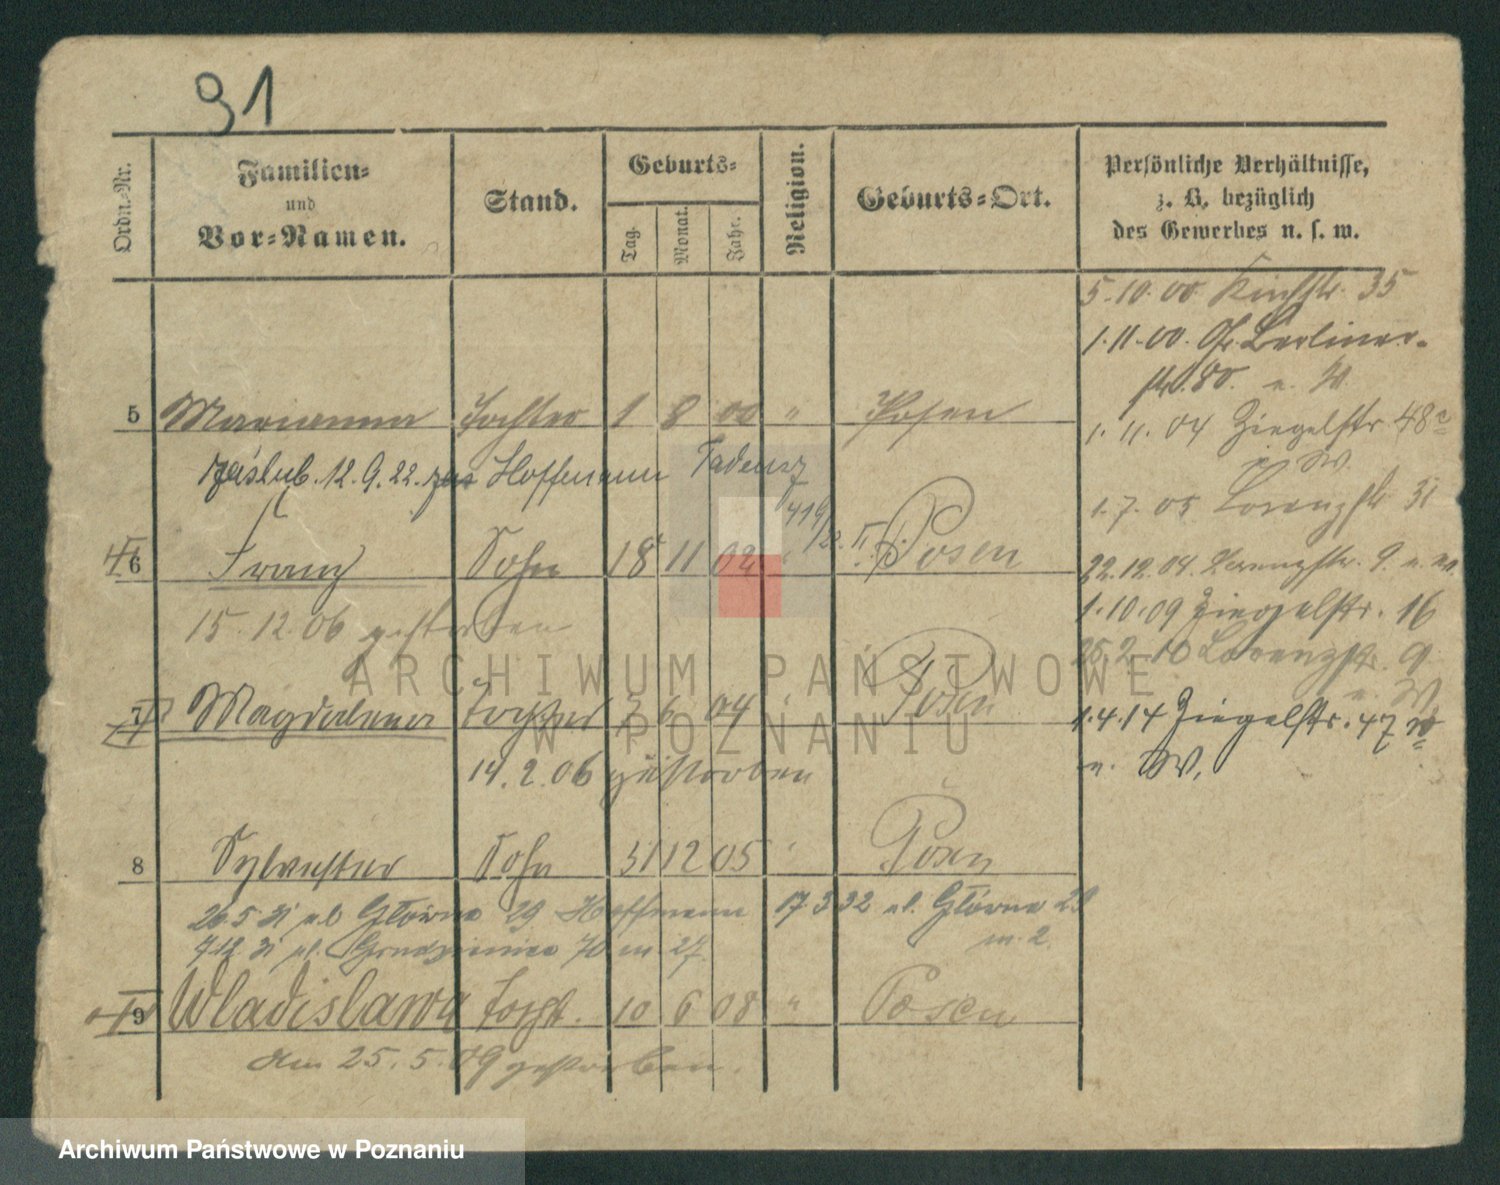 91
Ordn.-Nr.
Familien-
und
Vor-Namen.
Stand.
Geburts-
Tag.
Monat.
Jahr.
Religion.
Geburts-Ort.
Persönliche Verhältnisse,
z. B. bezüglich
des Gewerbes u. s. w.
5.10.00 35
1.11.00. Gr. Berliner-
str. 80.
5 Marianna Tochter 1 8 00 " Posen
1.11.04 Ziegelstr 48a
zaślub. 12.9.22. Hoffmann Tadeusz
u. W.
1.7.05 Lorenzstr 31
6 Franz Sohn 18 11 02 " Posen
22.12.04. Lorenzstr. 9
15.12.06 gestorben
1.10.09 Ziegelstr. 16
25.2.10 Lorenzstr. 9
u. W.
7 Magdalena Tochter 5 6 04 " Posen
1.4.14 Ziegelstr. 47
u. W.
14.2.06 gestorben
8 Sylvester Sohn 31 12 05 " Posen
26.5.31 ul. Główna 29 Hoffmann 17.3.32 ul. Główna 29
m. 2.
7.12.31 ul. 70 m. 27
9 Wladislawa Tocht. 10 6 08 " Posen
Am 25.5.09 gestorben.
ARCHIWUM PAŃSTWOWE
W POZNANIU
Archiwum Państwowe w Poznaniu